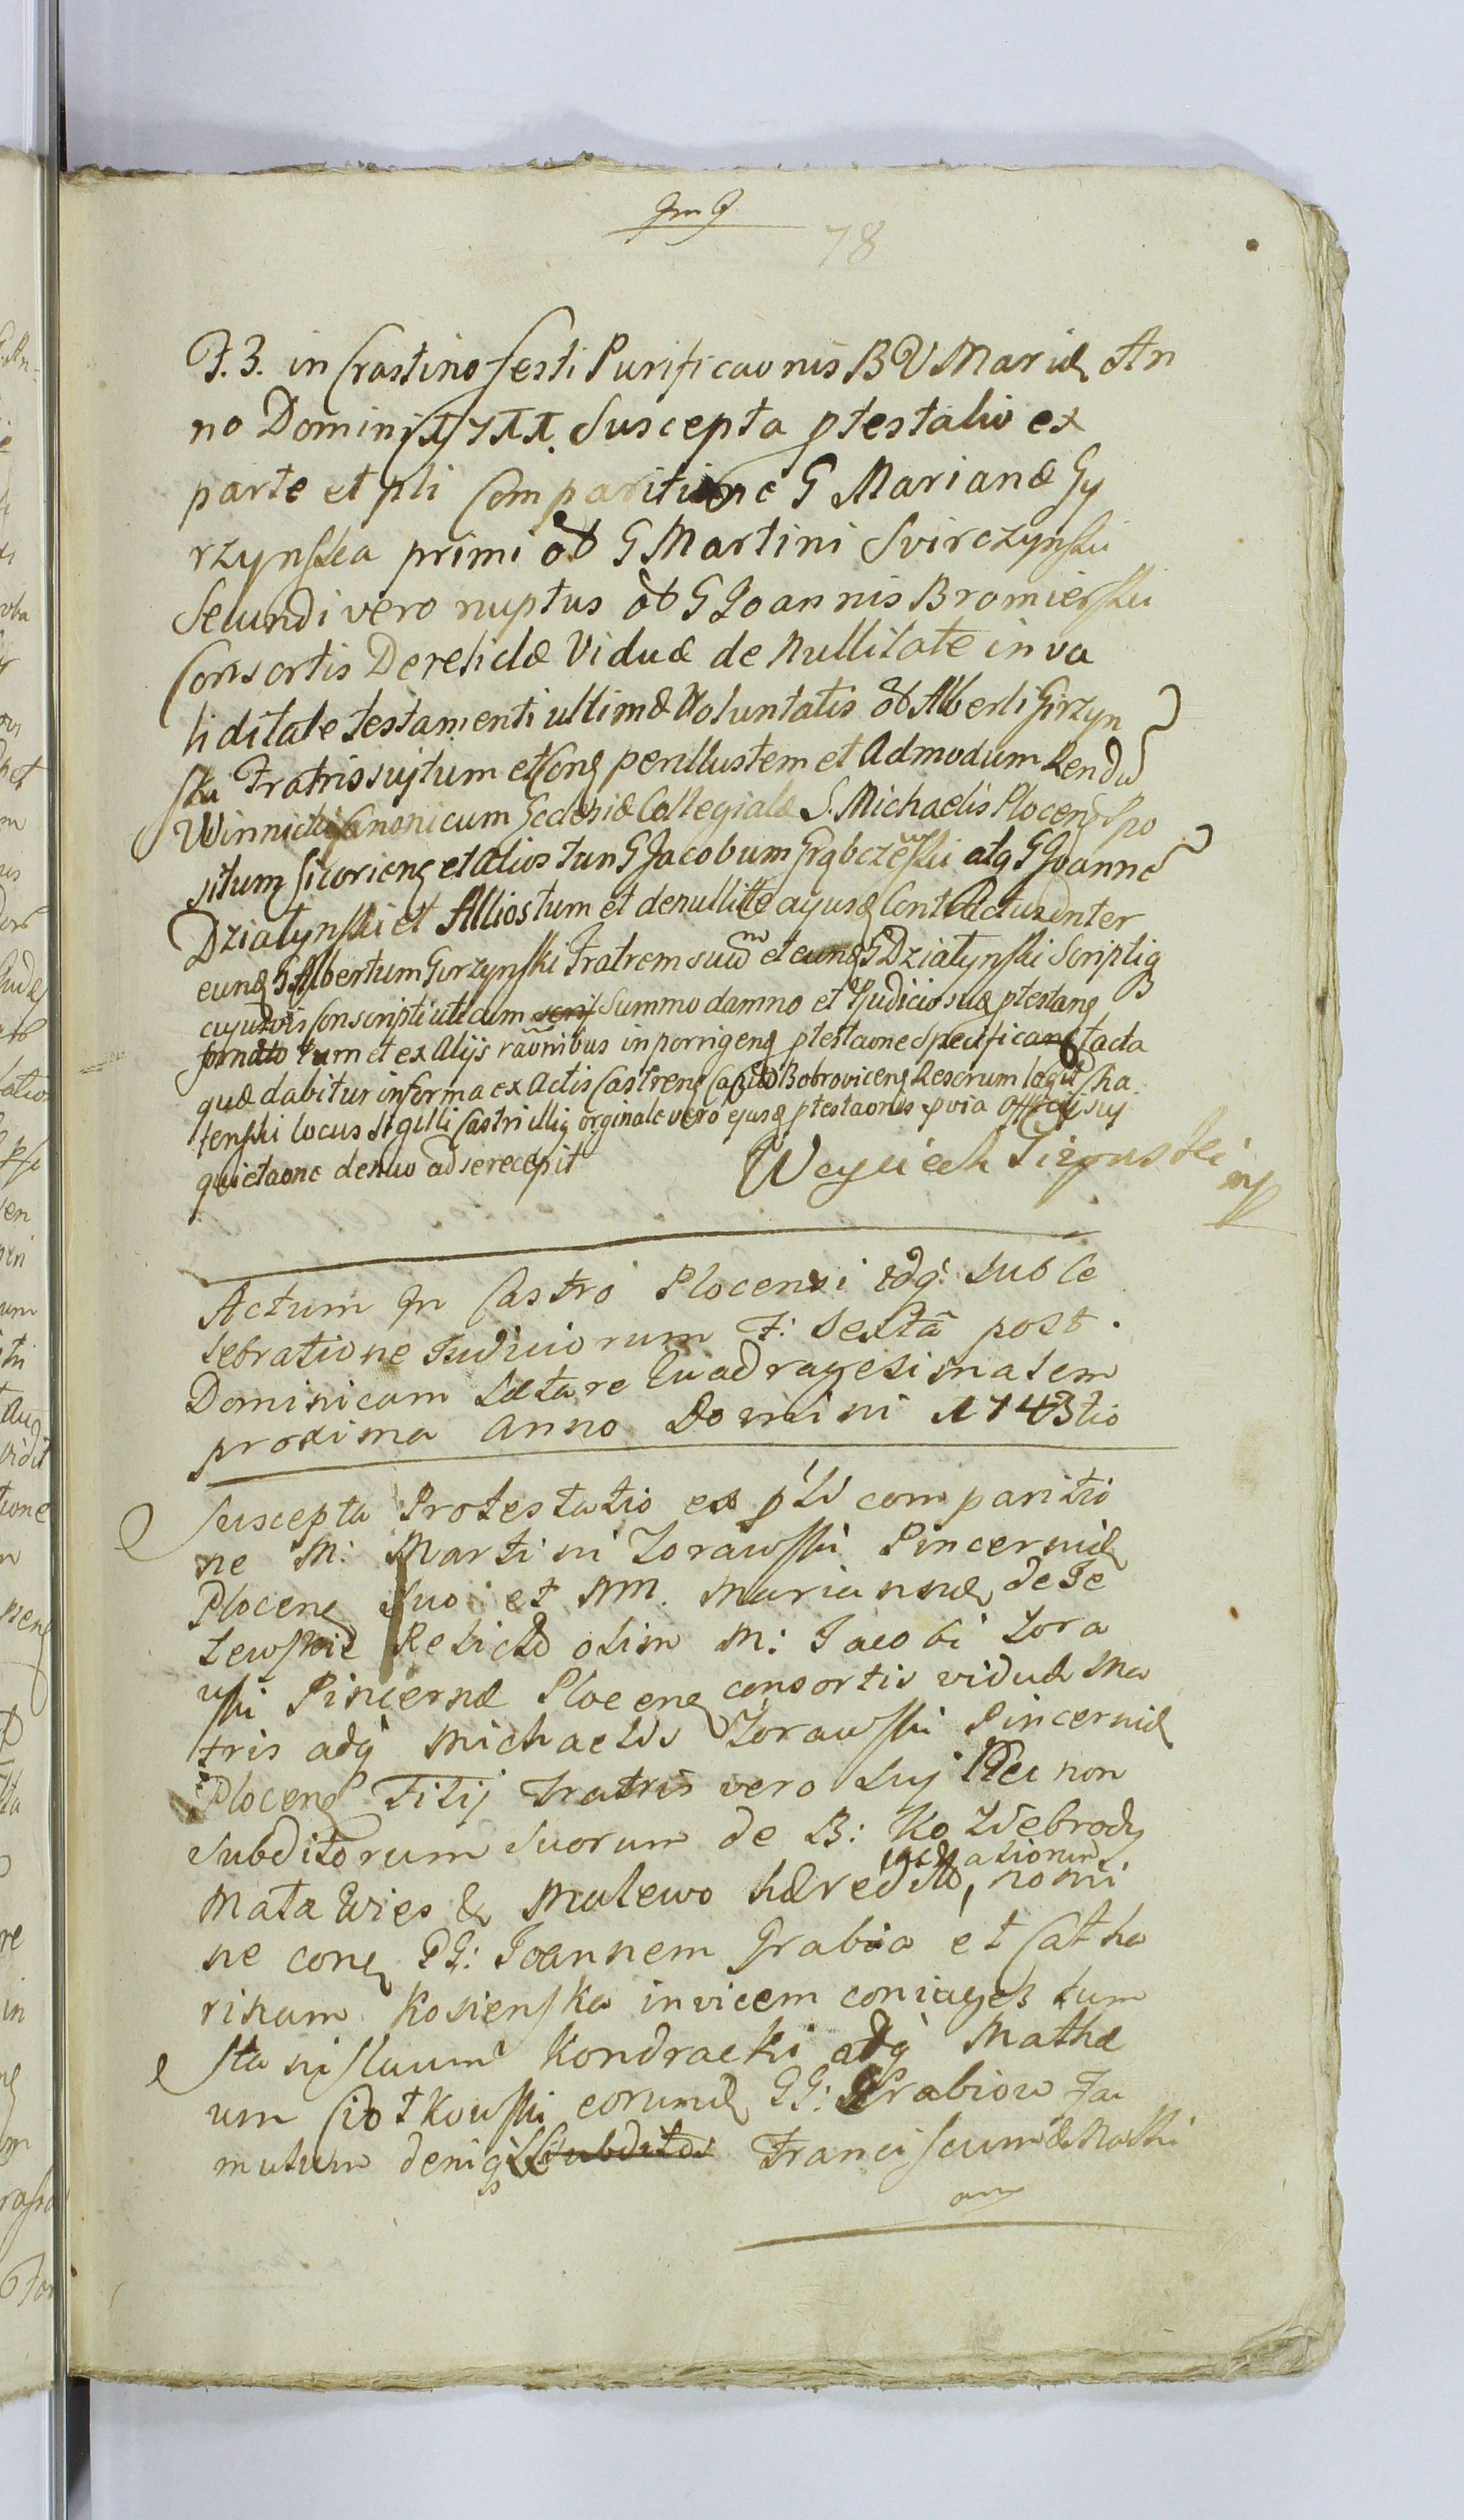 78
F. 3. in Crastino festi Purificaonis B V Mariæ An
no Domini
Suscepta ptestatio ex
parte et pli Comparitione G Marianæ Gy
rzynska primi ol G Martini Svirczynski
Secundi vero nuptus ol G Joannis Bromierski
Consortis Derelictæ Viduæ de Nullitate inva
liditate testamenti ultimæ Voluntatis ol Alberti Girzyn
ski Fratris suj tum et Conq perillustem et Admodum Rendu
Winnicki Canonicum Ecclesiæ Collegialæ S. Michaelis Plocenq Ppo
situm Sicorienq et Alios tun G Jacobum Grąbczewski atq G Joanne
Działynski et Allios tum et de nullitte Contractus Inter
eunq G Albertum Girzynski Fratrem suum et eunq G Działynski Scriptiq
cujusvis Conscripti uti cum summo damno et Pjudicio suæ ptestanq
tum et ex Alijs raonibus in porrigenq ptestaone Specificanq facta
quæ dabitur in forma ex Actis Castrenq Bobroviceng Rescrum legit Cha
tenski locus Sigilli Castri illiq orginale vero ejusq ptestaonis pvia Officij suj
quietaone denuo ad se recepit
Woyciech Girzynski
mp
Actum In Castro Plocensi adq. sub Ce
lebratione Judiciorum F: Sexta post
Dominicam Lætare Quadragesimalem
proxima Anno Domini 1743tio
Suscepta Protestatio ex pli comparitio
ne M: Martini Zorawski Pincernid
Plocenq suo et NM. Mariannæ de Je
zewskie Relictæ olim M: Jacobi Zora
wski Pincernæ Plocenq consortis viduæ Ma
tris adq Michaelis Zorawski Pincernid
Plocenq Filij Fratris vero suj nec non
subditorum suorum de B: Kozlebrody
Mała Wies & Malewo hæredit, nomi
ne conq GG: Joannem Grabia et Catha
rinam Kosienska invicem coniuges tum
Stanisluum Kondracki adq Mathæ
um Ciotkowski eorumq GG: Grabiow Fa
mulum deniq Subditos Franciscum & Mathi
am